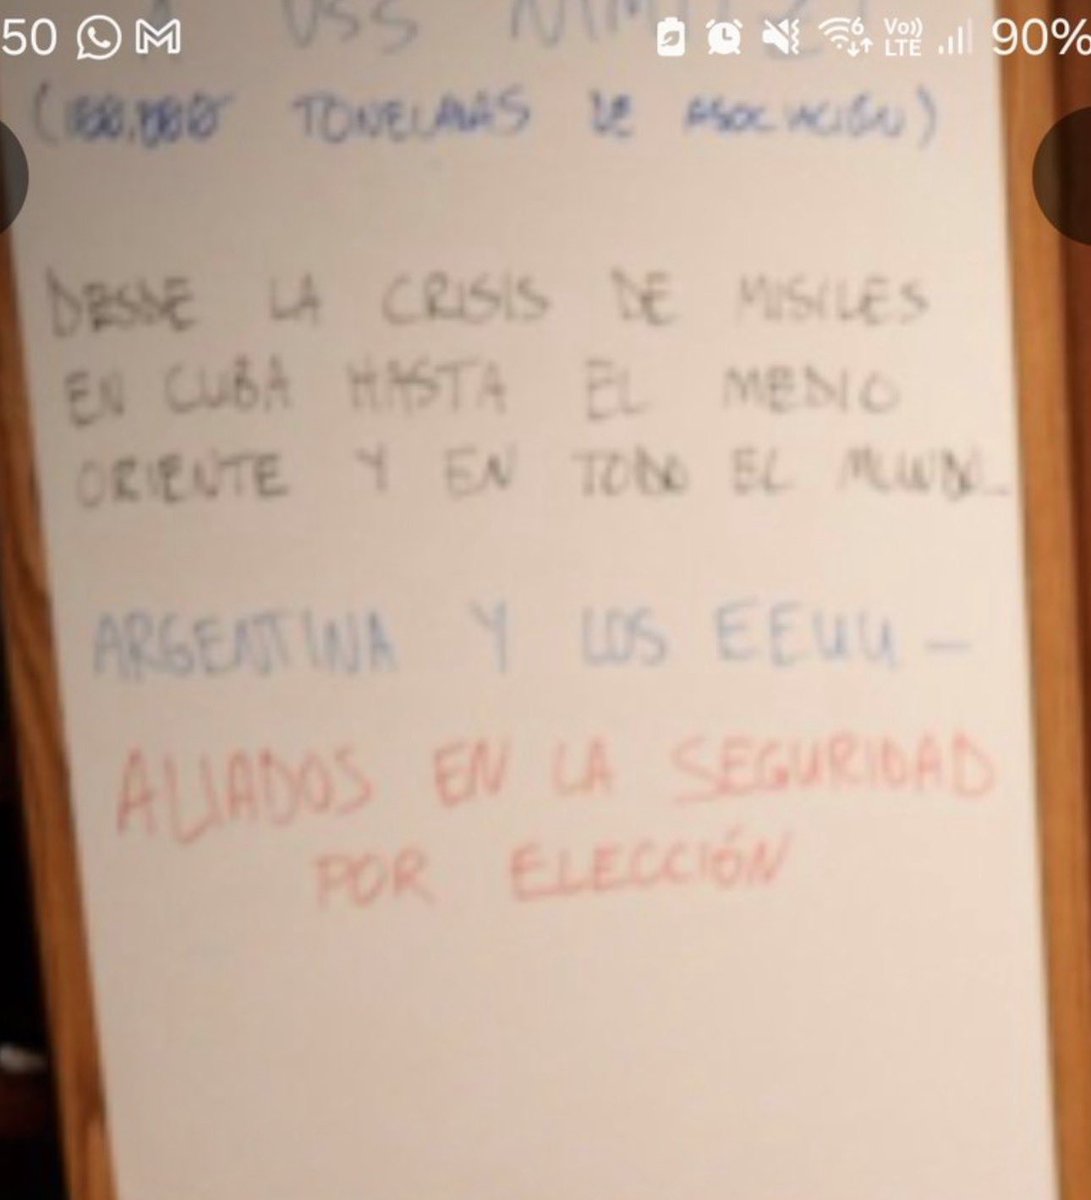 50 90%
USS NIMITZ
(100,000 TONELADAS DE ASOCIACIÓN)
DESDE LA CRISIS DE MISILES
EN CUBA HASTA EL MEDIO
ORIENTE Y EN TODO EL MUNDO
ARGENTINA Y LOS EEUU —
ALIADOS EN LA SEGURIDAD
POR ELECCIÓN